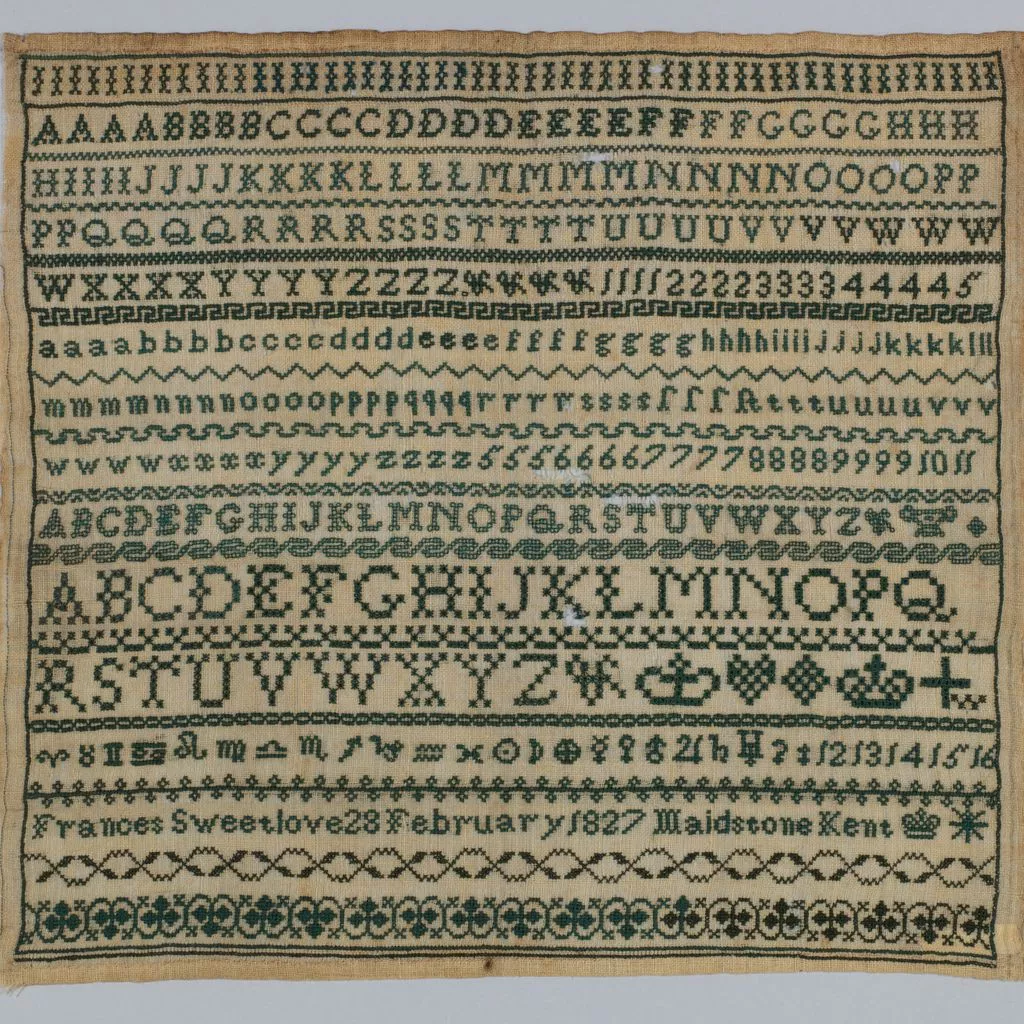 AAAABBBBCCCCDDDDEEEEFFFFGGGGHHH
HIIIIJJJJKKKKLLLLMMMMNNNNOOOOPP
PPQQQQRRRRSSSSTTTTUUUUVVVVWWW
WXXXXYYYYZZZZ&&&&11112222333344445
aaaabbbbccccddddeeeeffffgggghhhhiiiijjjjkkkklll
mmmmnnnnooooppppqqqqrrrrssssſſſſttttuuuuvvv
wwwwxxxxyyyyzzzz555666677778888999910 11
ABCDEFGHIJKLMNOPQRSTUVWXYZ&
ABCDEFGHIJKLMNOPQ
RSTUVWXYZ&
♈♉♊♋♌♍♎♏♐♑♒♓☉☽⊕☿♀♂♃♄♅ 12 13 14 15 16
Frances Sweetlove 28 February 1827 Maidstone Kent